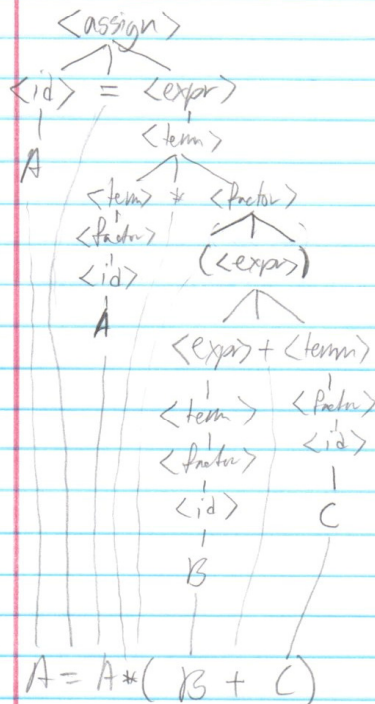 <assign>
<id> = <expr>
A <term>
<term> * <factor>
<factor> (<expr>)
<id>
A
<expr> + <term>
<term> <factor>
<factor> <id>
<id> C
B
A = A * ( B + C )